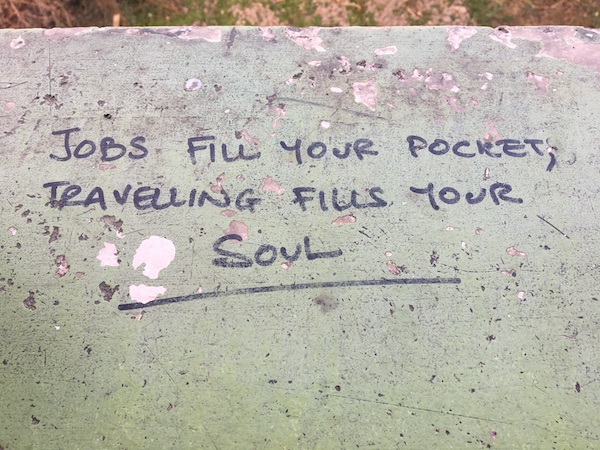 JOBS FILL YOUR POCKET,
TRAVELLING FILLS YOUR
SOUL